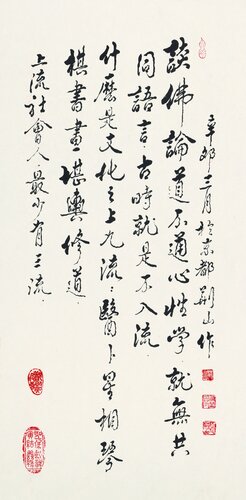 談佛論道不通心性學就無共
同語言古時就是不入流
什麼是文化之上九流醫卜星相琴
棋書畫堪輿修道
上流社會人最少有三流
辛卯三月於京都荊山作